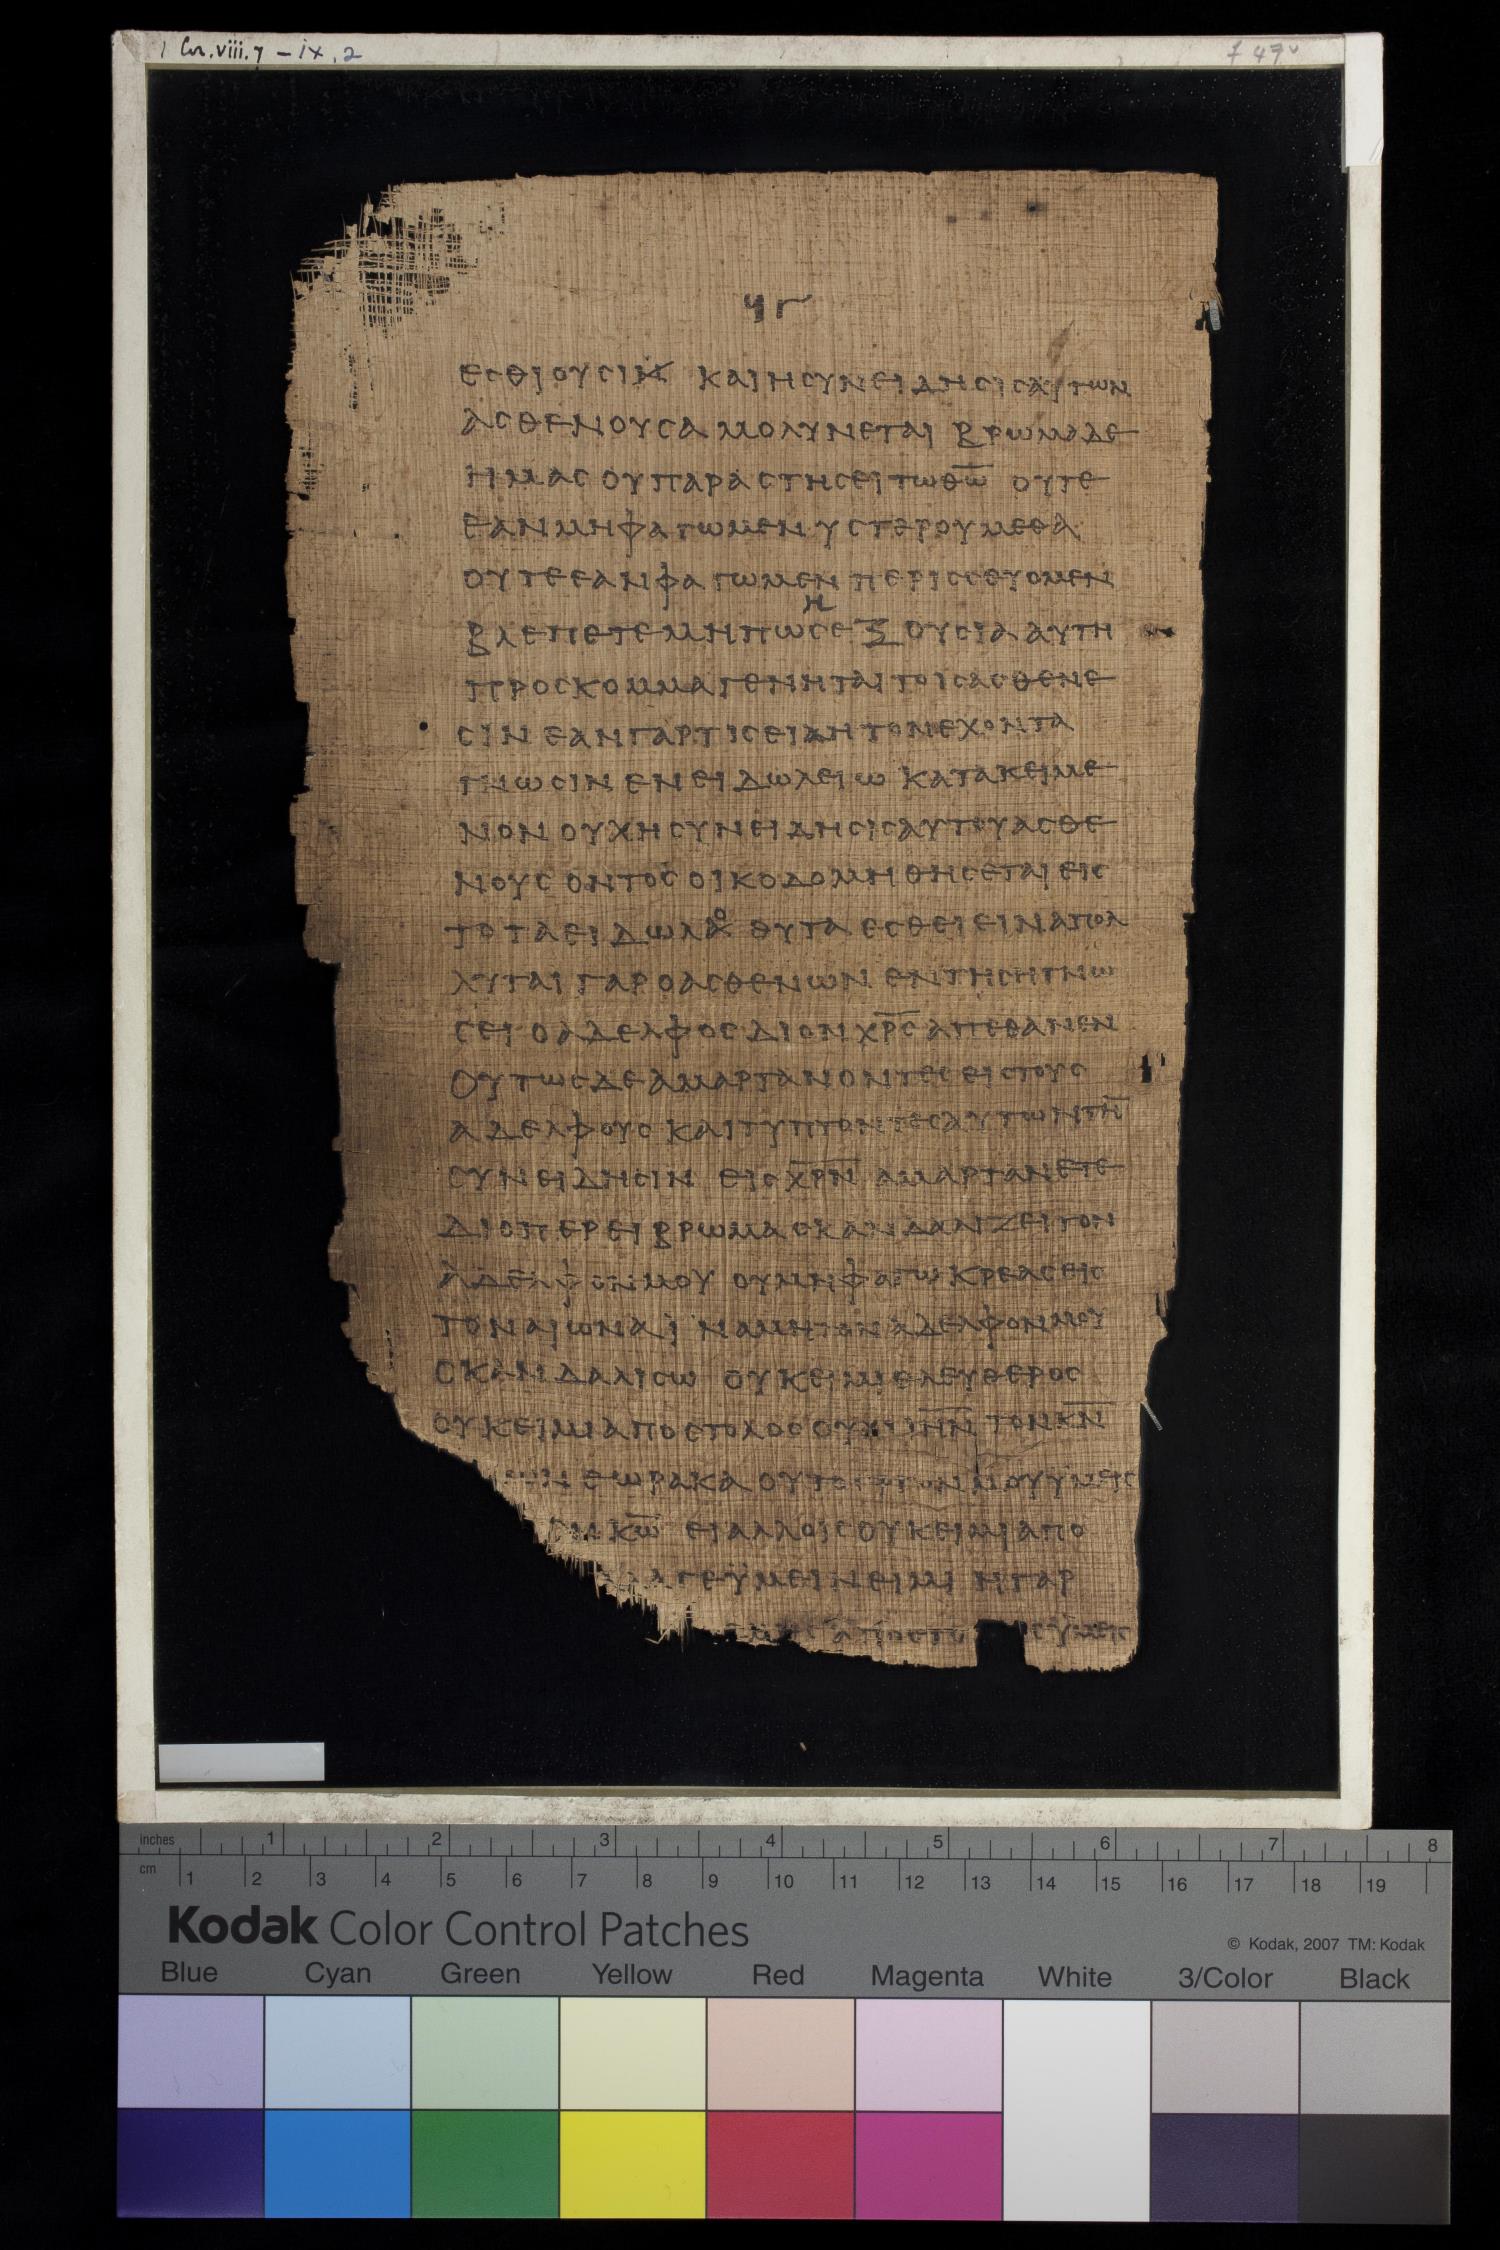 1 Cor. viii. 7 – ix, 2
f 47v
ϥγ
εσθιουσιν και η συνειδησις αυτων
ασθενουσα μολυνεται βρωμα δε
ημας ου παραστησει τω θ̅ω̅ ουτε
εαν μη φαγωμεν υστερουμεθα
ουτε εαν φαγωμεν περισσευομεν
βλεπετε μη πως η εξουσια αυτη
προσκομμα γενηται τοις ασθενε
σιν εαν γαρ τις ειδη τον εχοντα
γνωσιν εν ειδωλειω κατακειμε
νον ουχ η συνειδησις αυτου ασθε
νους οντος οικοδομηθησεται εις
το τα ειδωλοθυτα εσθειειν απολ
λυται γαρ ο ασθενων εν τη ση γνω
σει ο αδελφος δι ον χ̅ρ̅ς̅ απεθανεν
ουτως δε αμαρτανοντες εις τους
αδελφους και τυπτοντες αυτων τη̅
συνειδησιν εις χ̅ρ̅ν̅ αμαρτανετε
διοπερ ει βρωμα σκανδαλιζει τον
αδελφον μου ου μη φαγω κρεας εις
τον αιωνα ϊνα μη τον αδελφον μου
σκανδαλισω ουκ ειμι ελευθερος
ουκ ειμι αποστολος ουχι ι̅η̅ν̅ τον κ̅ν̅
εωρακα ου το μου υμεις
κ̅ω̅ ει αλλοις ουκ ειμι απο
γε ϋμειν ειμι η γαρ
αποστο ϋμεις
inches 1 2 3 4 5 6 7 8
cm 1 2 3 4 5 6 7 8 9 10 11 12 13 14 15 16 17 18 19
Kodak Color Control Patches
© Kodak, 2007 TM: Kodak
Blue Cyan Green Yellow Red Magenta White 3/Color Black